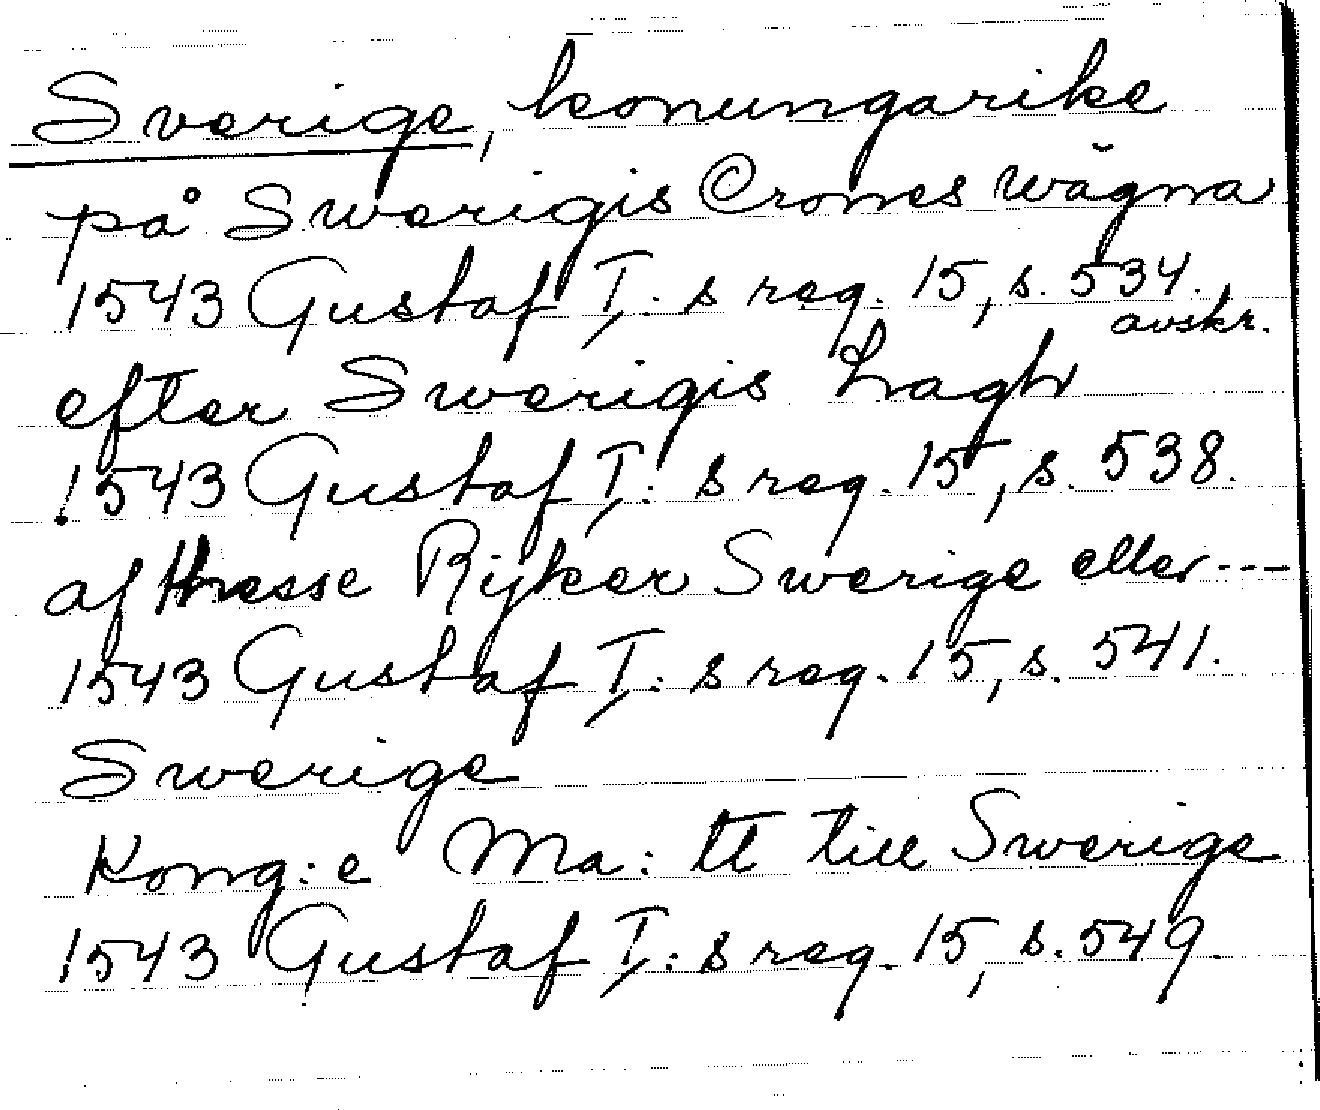 Sverige, konungarike
på Swerigis Crones wägna
1543 Gustaf I: s reg. 15, s. 534.
avskr.
efter Swerigis Lagh
1543 Gustaf I: s reg. 15, s. 538.
af thesse Rijker Swerige eller ---
1543 Gustaf I: s reg. 15, s. 541.
Swerige
Kong: e Ma: tt till Swerige
1543 Gustaf I: s reg. 15, s. 549.